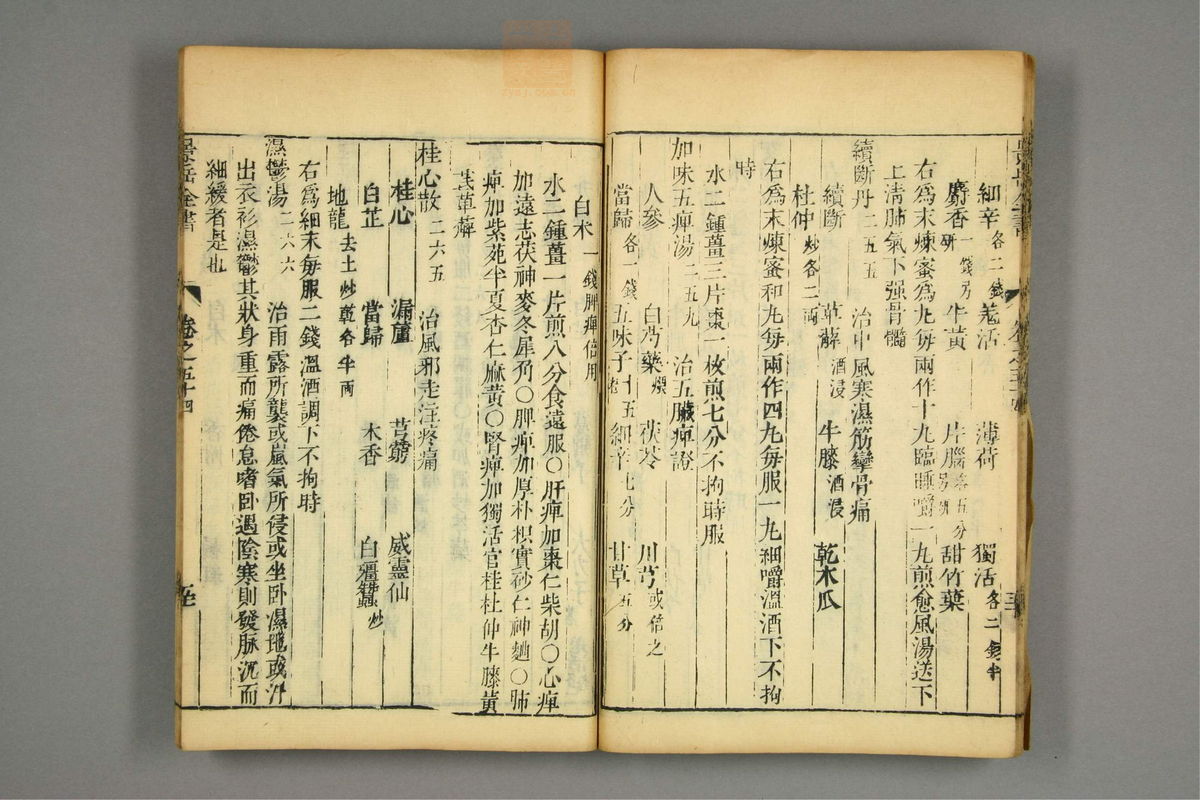 細辛各二錢 羗活 薄荷 獨活各二錢半
麝香一錢另研 牛黃 片腦各五分另研 甜竹葉
右為末煉蜜為丸每兩作十九臨睡嚼一丸煎愈風湯送下
上清肺氣下强骨髓
續斷丹二五五 治中風寒濕筋攣骨痛
續斷 萆薢酒浸 牛膝酒浸 乾木瓜
杜仲炒各二兩
右為末煉蜜和丸每兩作四丸每服一丸細嚼溫酒下不拘
時
水二鍾薑三片棗一枚煎七分不拘時服
加味五痺湯二五九 治五臟痺證
人參 白芍藥煨 茯苓 川芎或倍之
當歸各一錢 五味子十五 細辛七分 甘草五分
白术一錢脾痺倍用
水二鍾薑一片煎八分食遠服○肝痺加棗仁柴胡○心痺
加遠志茯神麥冬犀角○脾痺加厚朴枳實砂仁神麯○肺
痺加紫菀半夏杏仁麻黃○腎痺加獨活官桂杜仲牛膝黃
茋萆薢
桂心散二六五 治風邪走注疼痛
桂心 漏蘆 芎藭 威靈仙
白芷 當歸 木香 白殭蠶炒
地龍去土炒乾各半兩
右為細末每服二錢溫酒調下不拘時
濕鬱湯二六六 治雨露所襲或嵐氣所侵或坐卧濕地或汗
出衣衫濕鬱其狀身重而痛倦怠嗜卧遇陰寒則發脉沉而
細緩者是也
景岳全書 卷之五十四